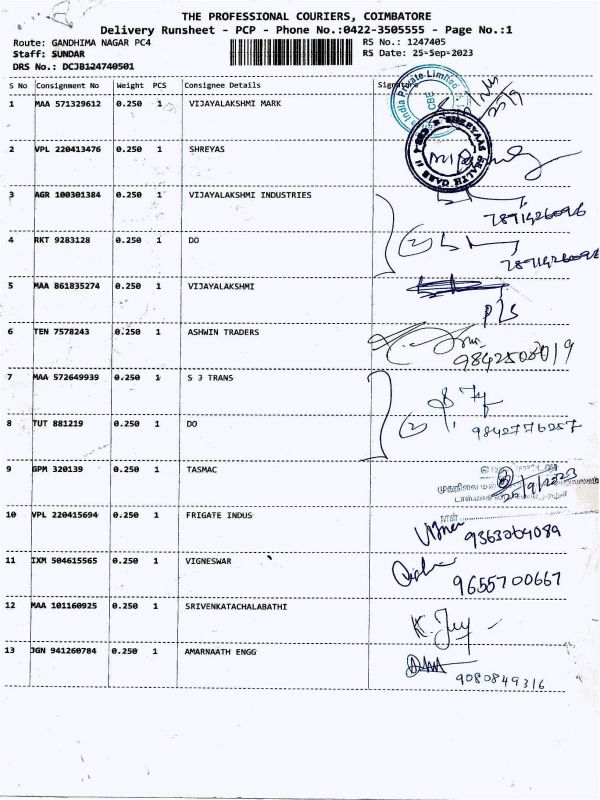 THE PROFESSIONAL COURIERS, COIMBATORE
Delivery Runsheet - PCP - Phone No.:0422-3505555 - Page No.:1
Route: GANDHIMA NAGAR PC4
RS No.: 1247405
Staff: SUNDAR
RS Date: 25-Sep-2023
DRS No.: DCJB124740501
S No Consignment No Weight PCS Consignee Details Signature
India Private Limited
CBE
1 MAA 571329612 0.250 1 VIJAYALAKSHMI MARK
2 VPL 220413476 0.250 1 SHREYAS
HEALTH CARE
3 AGR 100301384 0.250 1 VIJAYALAKSHMI INDUSTRIES
7891426096
4 RKT 9283128 0.250 1 DO
7891426096
5 MAA 861835274 0.250 1 VIJAYALAKSHMI
6 TEN 7578243 0.250 1 ASHWIN TRADERS
7 MAA 572649939 0.250 1 S J TRANS
8 TUT 881219 0.250 1 DO
9842776257
9 GPM 320139 0.250 1 TASMAC
26/9/2023
நாள்
10 VPL 220415694 0.250 1 FRIGATE INDUS
9363069089
11 IXM 504615565 0.250 1 VIGNESWAR
9655700667
12 MAA 101160925 0.250 1 SRIVENKATACHALABATHI
13 JGN 941260784 0.250 1 AMARNAATH ENGG
9080849316